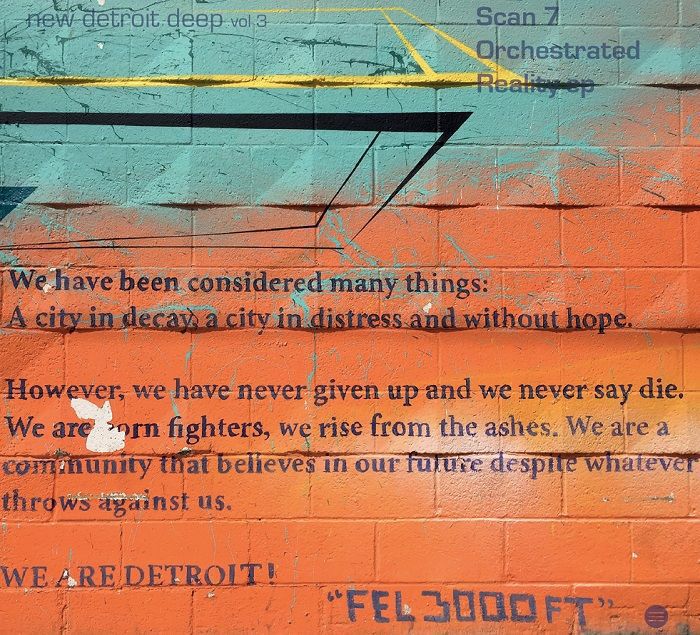 new detroit deep vol 3
Scan 7
Orchestrated
Reality ep
We have been considered many things:
A city in decay, a city in distress and without hope.
However, we have never given up and we never say die.
We are born fighters, we rise from the ashes. We are a
community that believes in our future despite whatever
throws against us.
WE ARE DETROIT!
"FEL3000FT"